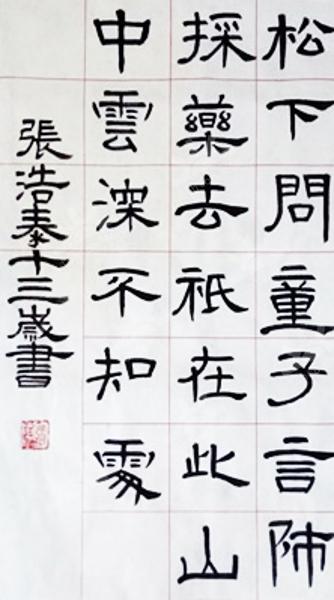 松下問童子言師
採藥去祇在此山
中雲深不知處
張浩泰十三歲書